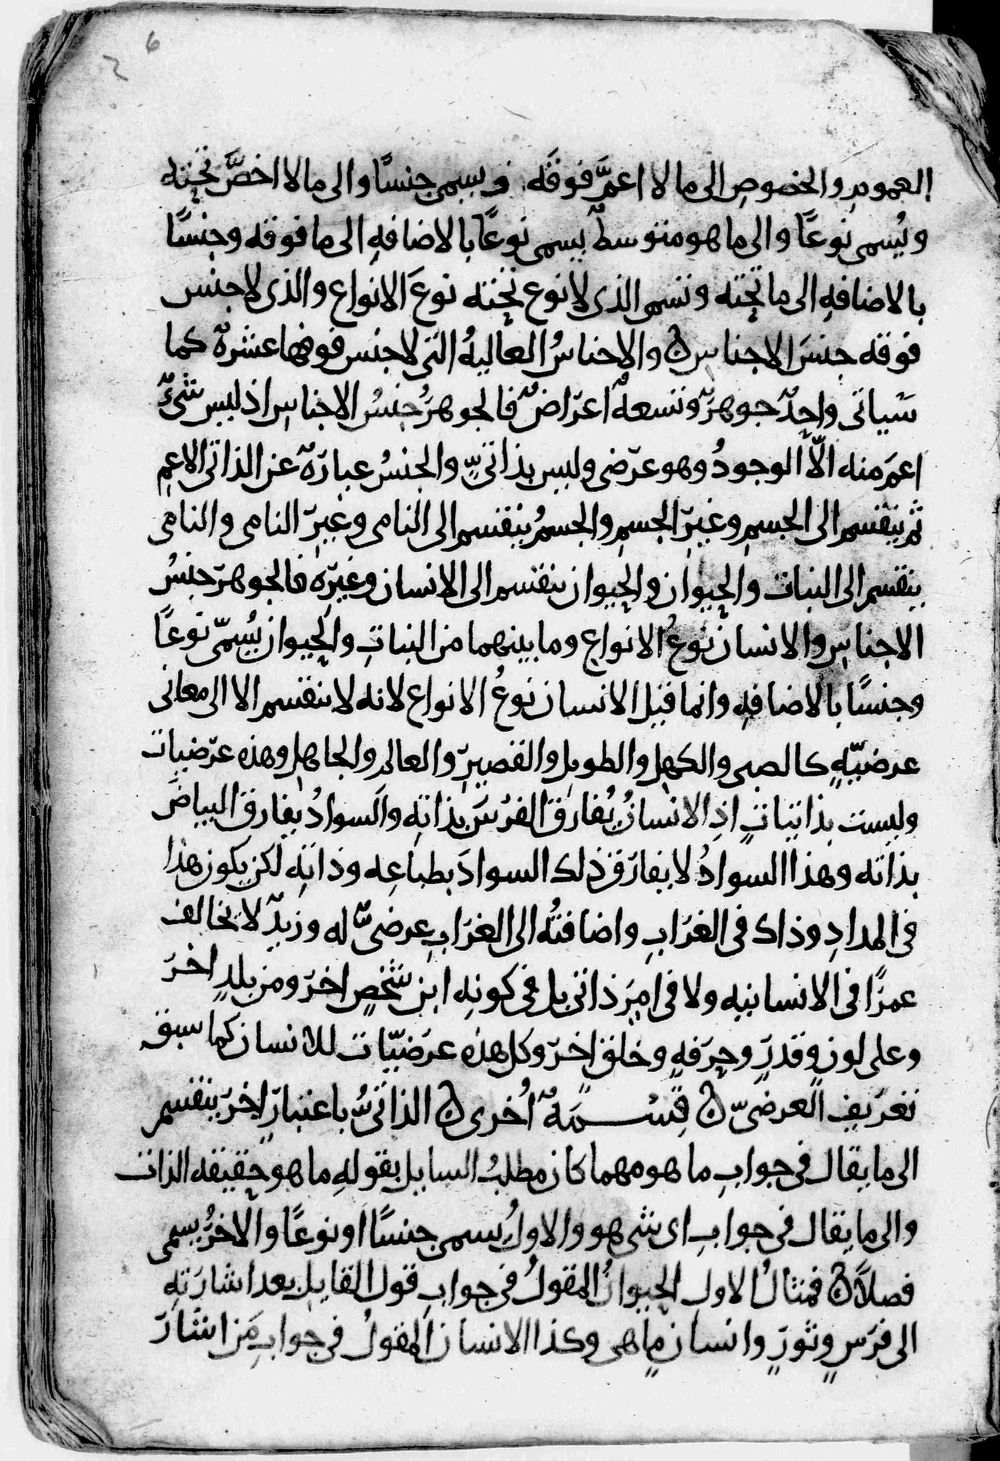 6
العموم والخصوص الى ما لا اعمَّ فوقَه ويسمى جنسًا والى ما لا اخصَّ تحته
ويُسمى نوعًا والى ما هو متوسطٌ يسمى نوعًا بالاضافهِ الى ما فوقه وجنسًا
بالاضافهِ الى ما تحته ونسمى الذى لا نوع تحته نوعَ الانواع والذى لا جنس
فوقه جنسَ الاجناس ن والاجناسُ العاليهُ التى لا جنس فوقها عشرهٌ كما
سَياتى واحدٌ جوهرٌ وتسعهٌ اعرَاضٌ فالجوهرُ جنسُ الاجناس اذ ليس شىءٌ
اعمَ منه الّا الوجودُ وهو عرَضى وليس بذاتىٍّ والجنسُ عبارَهٌ عن الذاتى الاعم
ثم ينقسم الى الجسمِ وغيرِ الجسمِ والجسمُ ينقسم الى النامى وغيرِ النامى والنامى
ينقسم الى النبات والحيوان والحيوان ينقسم الى الانسان وغيرِه فالجوهرَ جنسُ
الاجناسِ والانسان نوعُ الانواع وما بينهما من النباتِ والحيوان يُسمّى نوعًا
وجنسًا بالاضافهِ وانما قيل الانسان نوعُ الانواع لانه لا ينقسم الا الى معانى
عرضيّهٍ كالصبى والكهل والطويل والقصيرِ والعالم والجاهل وهذه عرَضيات
وليست بذاتياتٍ اذِ الانسانُ يُفارقَ الفرسَ بذاتِه والسوادُ يفارقَ البياضَ
بذاته وهذا السوادُ لا يفارَق ذلك السوادَ بطباعِه وذاتِه لكن يكون هذا
فى المدادِ وذاك فى الغرَابِ واضافتُه الى الغرَابِ عرضىٌّ له وزيدٌ لا يخالف
عمرًا فى الانسانيه ولا فى امرَ ذاتى بل فى كونِه ابن شخصٍ اخرَ ومن بلدٍ اخرَ
وعلى لونٍ وقدرٍ وحرَفهٍ وخلقٍ اخرَ وكل هذه عرَضيّات للانسان كما سبق
تعرَيف العرضىّ ن قِسْمَهٌ اُخرى ن الذاتىُّ باعتبارٍ اخرَ ينقسم
الى ما يقال فى جوابِ ما هو مهما كان مطلبُ السايل بقولهِ ما هو حقيقه الذات
والى ما يقال فى جوابِ اى شى هو والاولُ يسمى جنسًا او نوعًا والاخرُ يسمى
فصلًا ن فمثالُ الاول الحيوانُ المقولُ فى جوابِ قول القايل بعد اشارَتِه
الى فرَسٍ وثورٍ وانسان ما هى وكذا الانسان المقولُ فى جوابِ مَن اشارَ